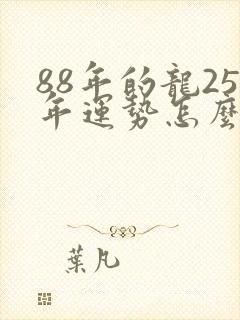 88年的龍25
年運勢怎麼
葉凡